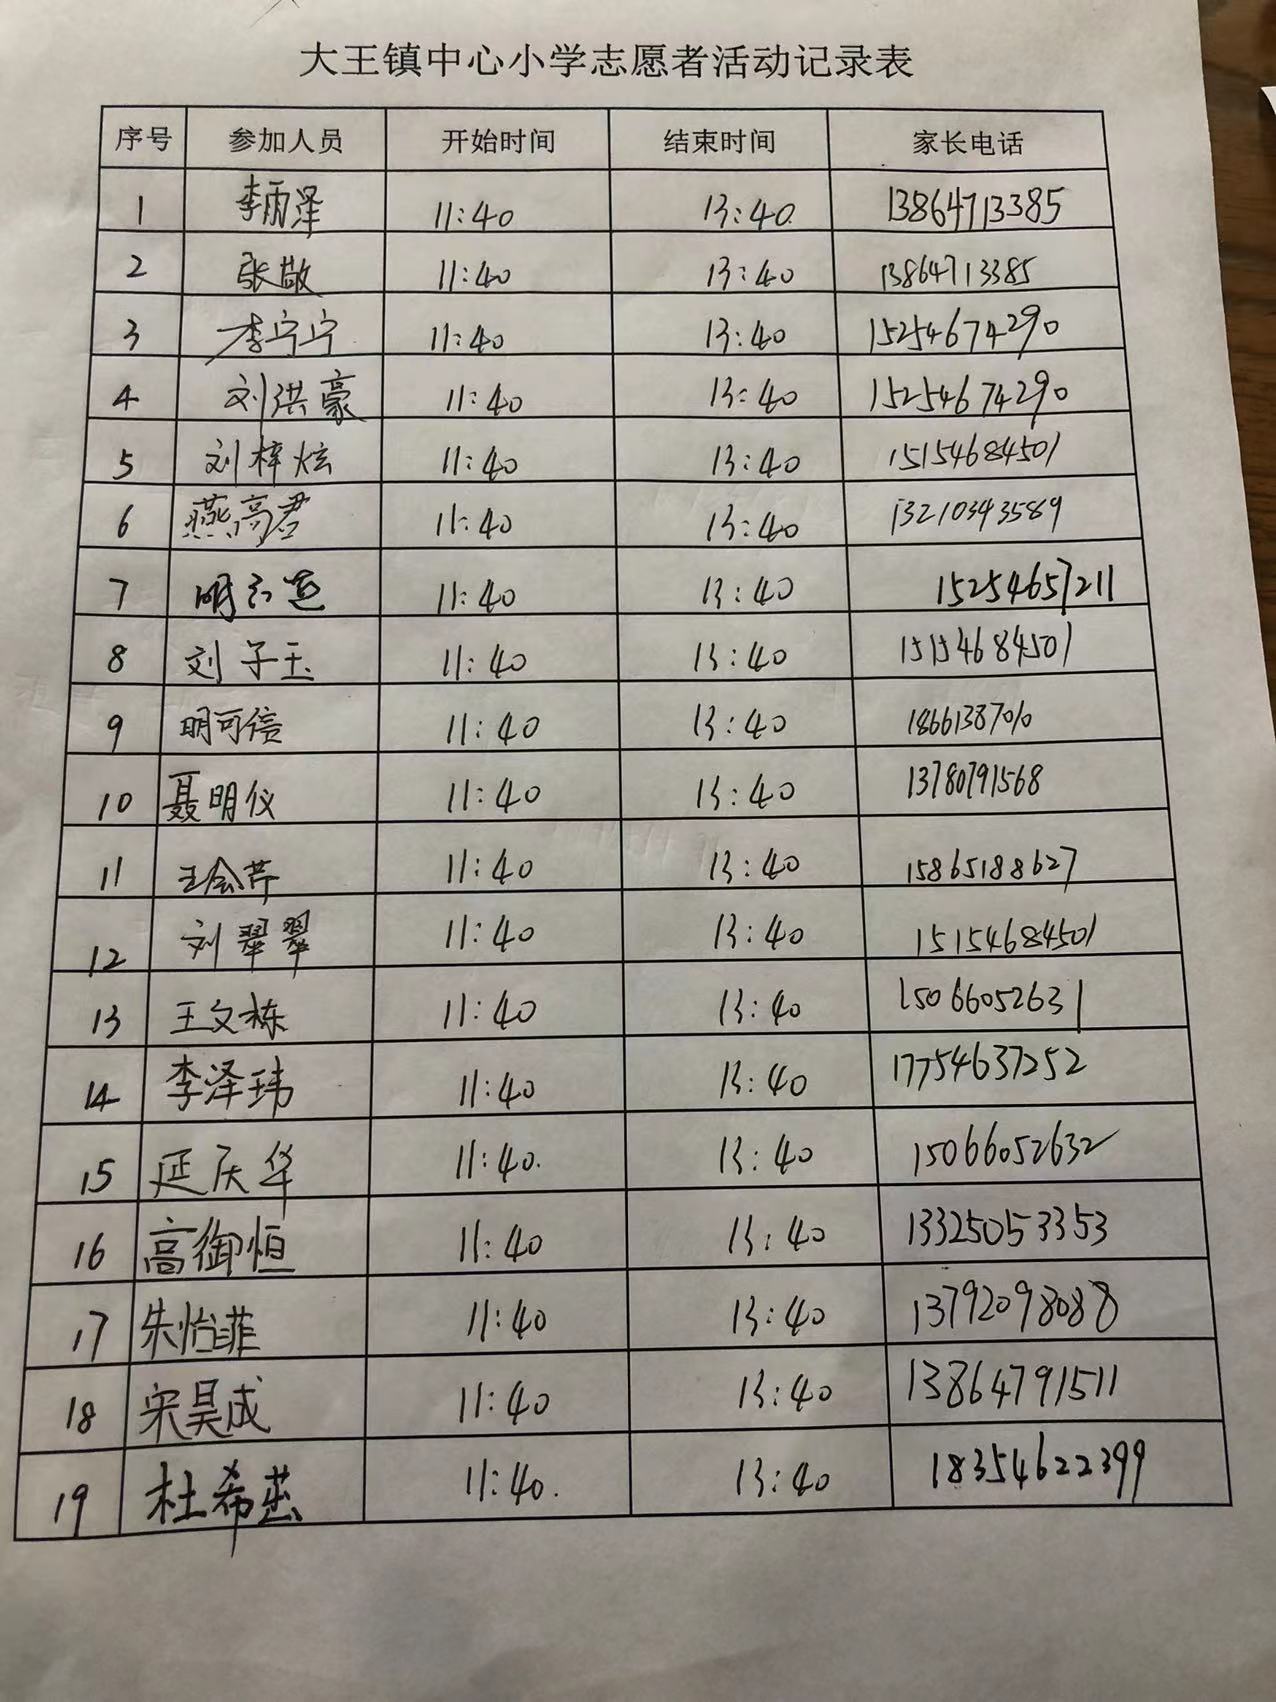 大王镇中心小学志愿者活动记录表
序号 参加人员 开始时间 结束时间 家长电话
1 李雨泽 11:40 13:40 13864713385
2 张敬 11:40 13:40 13864713385
3 李宁宁 11:40 13:40 15254674290
4 刘洪豪 11:40 13:40 15254674290
5 刘梓炫 11:40 13:40 15154684501
6 燕高君 11:40 13:40 13210343589
7 明 11:40 13:40 15254657211
8 刘子玉 11:40 13:40 15154684501
9 明可信 11:40 13:40 18661387010
10 聂明仪 11:40 13:40 13780791568
11 王会芹 11:40 13:40 15865188627
12 刘翠翠 11:40 13:40 15154684501
13 王文栋 11:40 13:40 15066052631
14 李泽玮 11:40 13:40 17754637252
15 延庆华 11:40. 13:40 15066052632
16 高御恒 11:40 13:40 13325053353
17 朱怡菲 11:40 13:40 13792098088
18 宋昊成 11:40 13:40 13864791511
19 杜希 11:40. 13:40 18354622399